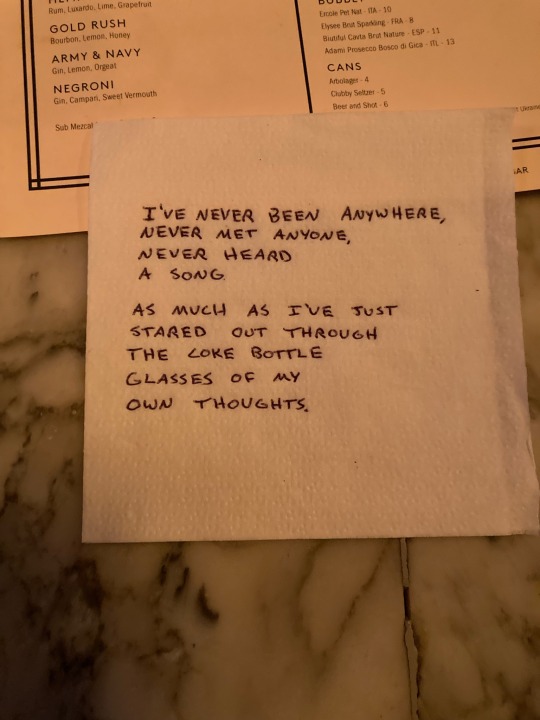 Rum, Luxardo, Lime, Grapefruit
GOLD RUSH
Bourbon, Lemon, Honey
ARMY & NAVY
Gin, Lemon, Orgeat
NEGRONI
Gin, Campari, Sweet Vermouth
Sub Mezcal
Ercole Pet Nat - ITA - 10
Elysee Brut Sparkling - FRA - 8
Biutiful Cavta Brut Nature - ESP - 11
Adami Prosecco Bosco di Gica - ITL - 13
CANS
Arbolager - 4
Clubby Seltzer - 5
Beer and Shot - 6
I'VE NEVER BEEN ANYWHERE,
NEVER MET ANYONE,
NEVER HEARD
A SONG
AS MUCH AS I'VE JUST
STARED OUT THROUGH
THE COKE BOTTLE
GLASSES OF MY
OWN THOUGHTS.